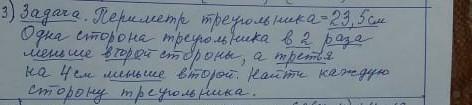 3) Задача. Периметр треугольника=23,5см
Одна сторона треугольника в 2 раза
меньше второй стороны, а третья
на 4см меньше второй. Найти каждую
сторону треугольника.